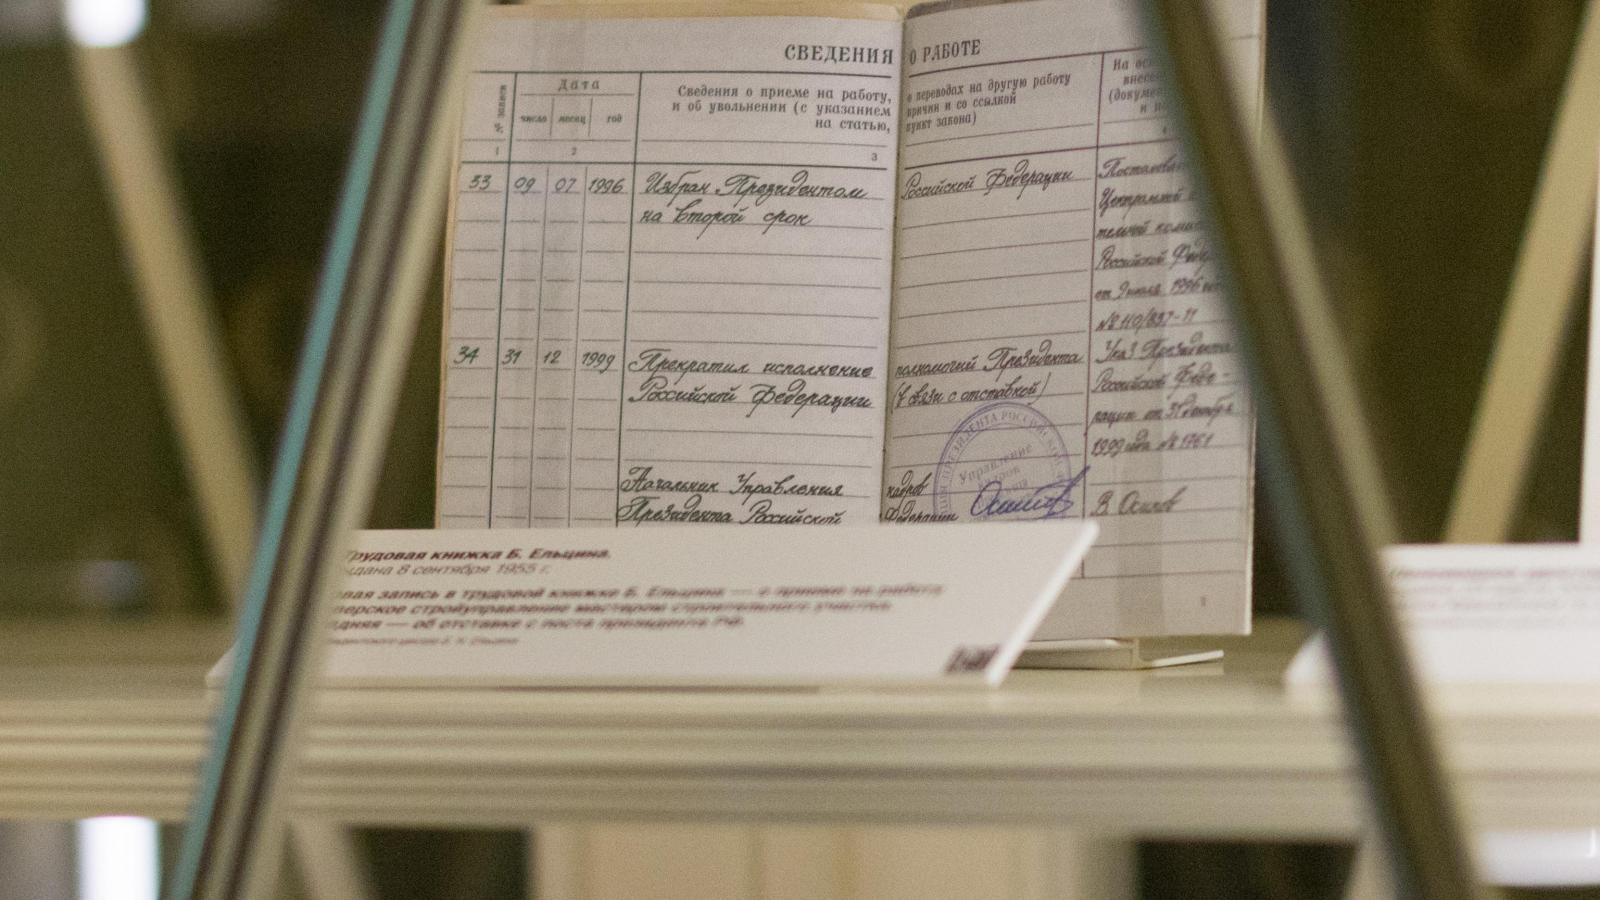 СВЕДЕНИЯ О РАБОТЕ
№ записи
Дата
число месяц год
Сведения о приеме на работу, о переводах на другую работу
и об увольнении (с указанием причин и со ссылкой
на статью, пункт закона)
На
внесе
(докуме
и
1 2 3 4
33 09 07 1996 Избран Президентом Российской Федерации
на второй срок
Постановл
Централь
тельной комис
Российской Феде
от 9 июля 1996
№ 110/837-11
34 31 12 1999 Прекратил исполнение полномочий Президента
Российской Федерации (в связи с отставкой)
Указ Президента
Российской Феде-
рации от 31 декабря
1999 года № 1761
Начальник Управления кадров
Президента Российской Федерации
В Осипов
ПРЕЗИДЕНТА РОССИЙСКОЙ
Управление
кадров
Трудовая книжка Б. Ельцина.
ыдана 8 сентября 1955 г.
вая запись в трудовой книжке Б. Ельцина — о приеме на работу
ерское стройуправление мастером строительного участка
дняя — об отставке с поста президента РФ.